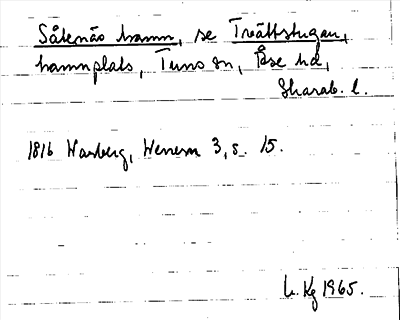 Såtenäs hamn, se Tvättstugan,
hamnplats, Tuns sn, Åse hd,
Skarab. l.
1816 Warberg, Wenern 3, s. 15.
L. Kg 1965.